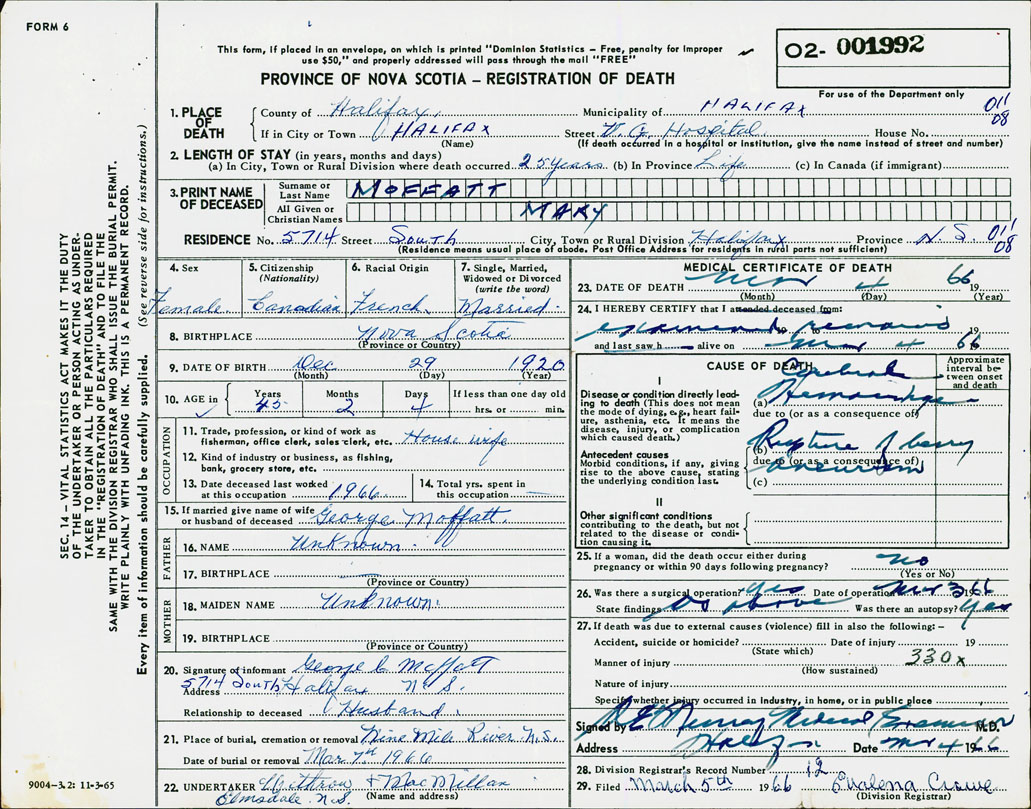 FORM 6
This form, if placed in an envelope, on which is printed "Dominion Statistics – Free, penalty for improper
use $50," and properly addressed will pass through the mail "FREE"
O2- 001992
PROVINCE OF NOVA SCOTIA – REGISTRATION OF DEATH
For use of the Department only
1. PLACE OF DEATH County of Halifax Municipality of HALIFAX 011 08
If in City or Town HALIFAX Street V. G. Hospital House No.
(Name) (If death occurred in a hospital or institution, give the name instead of street and number)
2. LENGTH OF STAY (in years, months and days)
(a) In City, Town or Rural Division where death occurred 25 years (b) In Province Life (c) In Canada (if immigrant)
3. PRINT NAME OF DECEASED Surname or Last Name MOFFATT
All Given or Christian Names MARY
RESIDENCE No. 5714 Street South City, Town or Rural Division Halifax Province N S. 011 08
(Residence means usual place of abode. Post Office Address for residents in rural parts not sufficient)
4. Sex Female
5. Citizenship (Nationality) Canadian
6. Racial Origin French
7. Single, Married, Widowed or Divorced (write the word) Married
8. BIRTHPLACE Nova Scotia
(Province or Country)
9. DATE OF BIRTH Dec 29 1920
(Month) (Day) (Year)
10. AGE in Years 45 Months 2 Days 4 If less than one day old hrs. or min.
OCCUPATION
11. Trade, profession, or kind of work as
fisherman, office clerk, sales clerk, etc. House wife
12. Kind of industry or business, as fishing,
bank, grocery store, etc.
13. Date deceased last worked
at this occupation 1966
14. Total yrs. spent in
this occupation
15. If married give name of wife
or husband of deceased George Moffatt
FATHER
16. NAME Unknown
17. BIRTHPLACE
(Province or Country)
MOTHER
18. MAIDEN NAME Unknown
19. BIRTHPLACE
(Province or Country)
20. Signature of informant George C Moffatt
Address 5714 South Halifax N.S.
Relationship to deceased Husband
21. Place of burial, cremation or removal Nine Mile River N.S.
Date of burial or removal Mar 7th 1966
22. UNDERTAKER & MacMillan
Elmsdale N.S. (Name and address)
MEDICAL CERTIFICATE OF DEATH
23. DATE OF DEATH Mar 4 19 66
(Month) (Day) (Year)
24. I HEREBY CERTIFY that I attended deceased from:
examined remains 19
and last saw h alive on Mar 4 19 66
CAUSE OF DEATH
Approximate interval between onset and death
I
Disease or condition directly leading to death (This does not mean
the mode of dying, e.g., heart failure, asthenia, etc. It means the
disease, injury, or complication
which caused death.)
Cerebral
(a) Hemorrhage
due to (or as a consequence of)
Antecedent causes
Morbid conditions, if any, giving
rise to the above cause, stating
the underlying condition last.
(b) Rupture of berry
due to (or as a consequence of)
aneurism
(c)
II
Other significant conditions
contributing to the death, but not
related to the disease or condition causing it.
25. If a woman, did the death occur either during
pregnancy or within 90 days following pregnancy? No
(Yes or No)
26. Was there a surgical operation? Yes Date of operation Mar 3 1966
State findings As above Was there an autopsy? Yes
27. If death was due to external causes (violence) fill in also the following: –
Accident, suicide or homicide? Date of injury 19
(State which)
Manner of injury 330x
(How sustained)
Nature of injury
Specify whether injury occurred in industry, in home, or in public place
Signed by Murray Medical Examiner M.D.
Address Hfx Date Mar 4 1966
28. Division Registrar's Record Number 12
29. Filed March 5th 1966 Evalena Crowe
(Division Registrar)
SEC. 14 – VITAL STATISTICS ACT MAKES IT THE DUTY
OF THE UNDERTAKER OR PERSON ACTING AS UNDER-
TAKER TO OBTAIN ALL THE PARTICULARS REQUIRED
IN THE "REGISTRATION OF DEATH" AND TO FILE THE
SAME WITH THE DIVISION REGISTRAR WHO SHALL ISSUE THE BURIAL PERMIT.
WRITE PLAINLY WITH UNFADING INK. THIS IS A PERMANENT RECORD.
Every item of information should be carefully supplied. (See reverse side for instructions.)
9004–3.2: 11-3-65